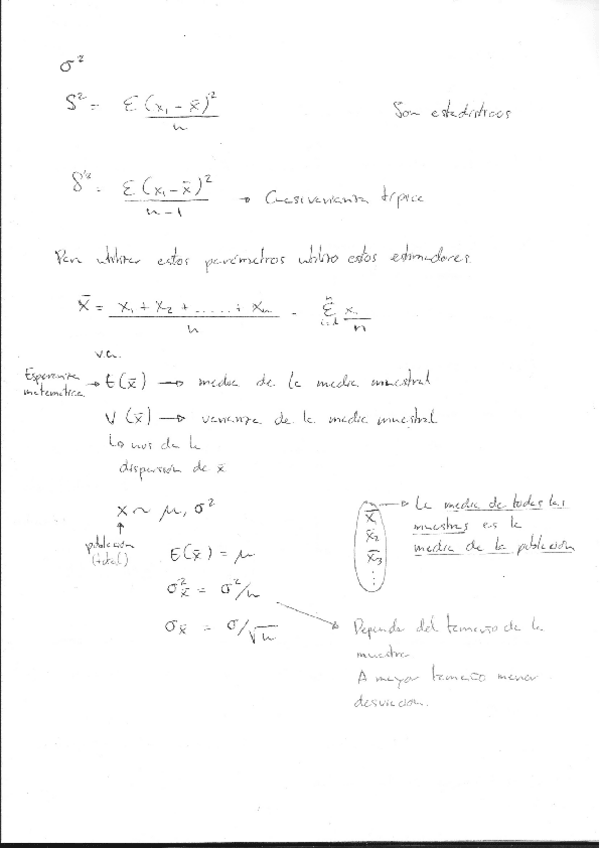 σ²
S² = Σ(x₁ - x̄)² / n    Son estadísticos
S'² = Σ(x₁ - x̄)² / n-1 → Cuasivarianza típica
Para utilizar estos parámetros utilizo estos estimadores.
x̄ = x₁ + x₂ + ..... + xₙ / n = Σⁿᵢ₌₁ xᵢ / n
v.a.
Esperanza matemática → E(x̄) → media de la media muestral
V(x̄) → varianza de la media muestral
↳ nos da la
dispersión de x̄
x ~ μ, σ²
↑
población
(total)
x̄₁ x̄₂ x̄₃ ⋮ → La media de todas las
muestras es la
media de la población
E(x̄) = μ
σ²x̄ = σ²/n
σx̄ = σ/√n
→ Depende del tamaño de la
muestra
A mayor tamaño menor
desviación.